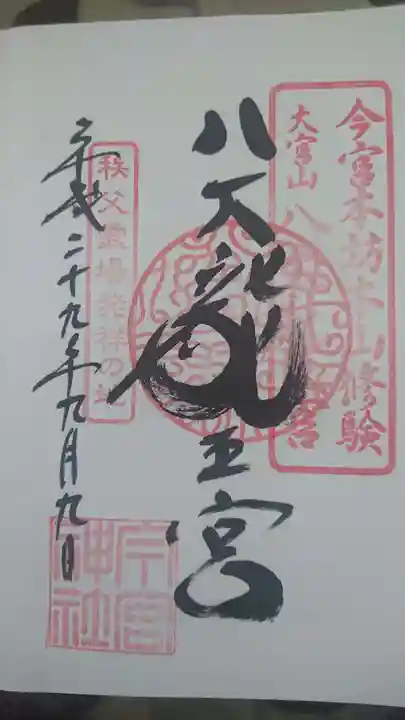 今宮本坊本山修験
大宮山 八
宮
八大龍王宮
秩父霊場発祥の地
平成二十九年九月九日
今宮
神社